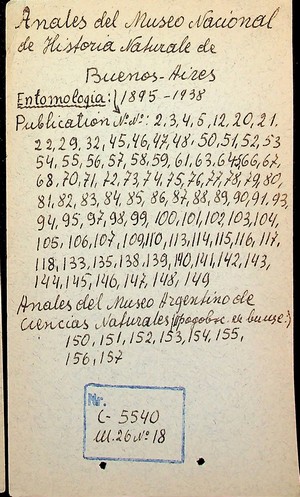 Anales del Museo Nacional
de Historia Naturale de
Buenos-Aires
Entomologia: 1895-1938
Publication №№: 2, 3, 4, 5, 12, 20, 21.
22, 29, 32, 45, 46, 47, 48, 50, 51, 52, 53
54, 55, 56, 57, 58, 59, 61, 63, 64, 65, 66, 67,
68, 70, 71, 72, 73, 74, 75, 76, 77, 78, 79, 80,
81, 82, 83, 84, 85, 86, 87, 88, 89, 90, 91, 93,
94, 95, 97, 98, 99, 100, 101, 102, 103, 104,
105, 106, 107, 109, 110, 113, 114, 115, 116, 117,
118, 133, 135, 138, 139, 140, 141, 142, 143,
144, 145, 146, 147, 148, 149
Anales del Museo Argentino de
Ciencias Naturales
150, 151, 152, 153, 154, 155,
156, 157
Nr.
C-5540
III. 26 № 18